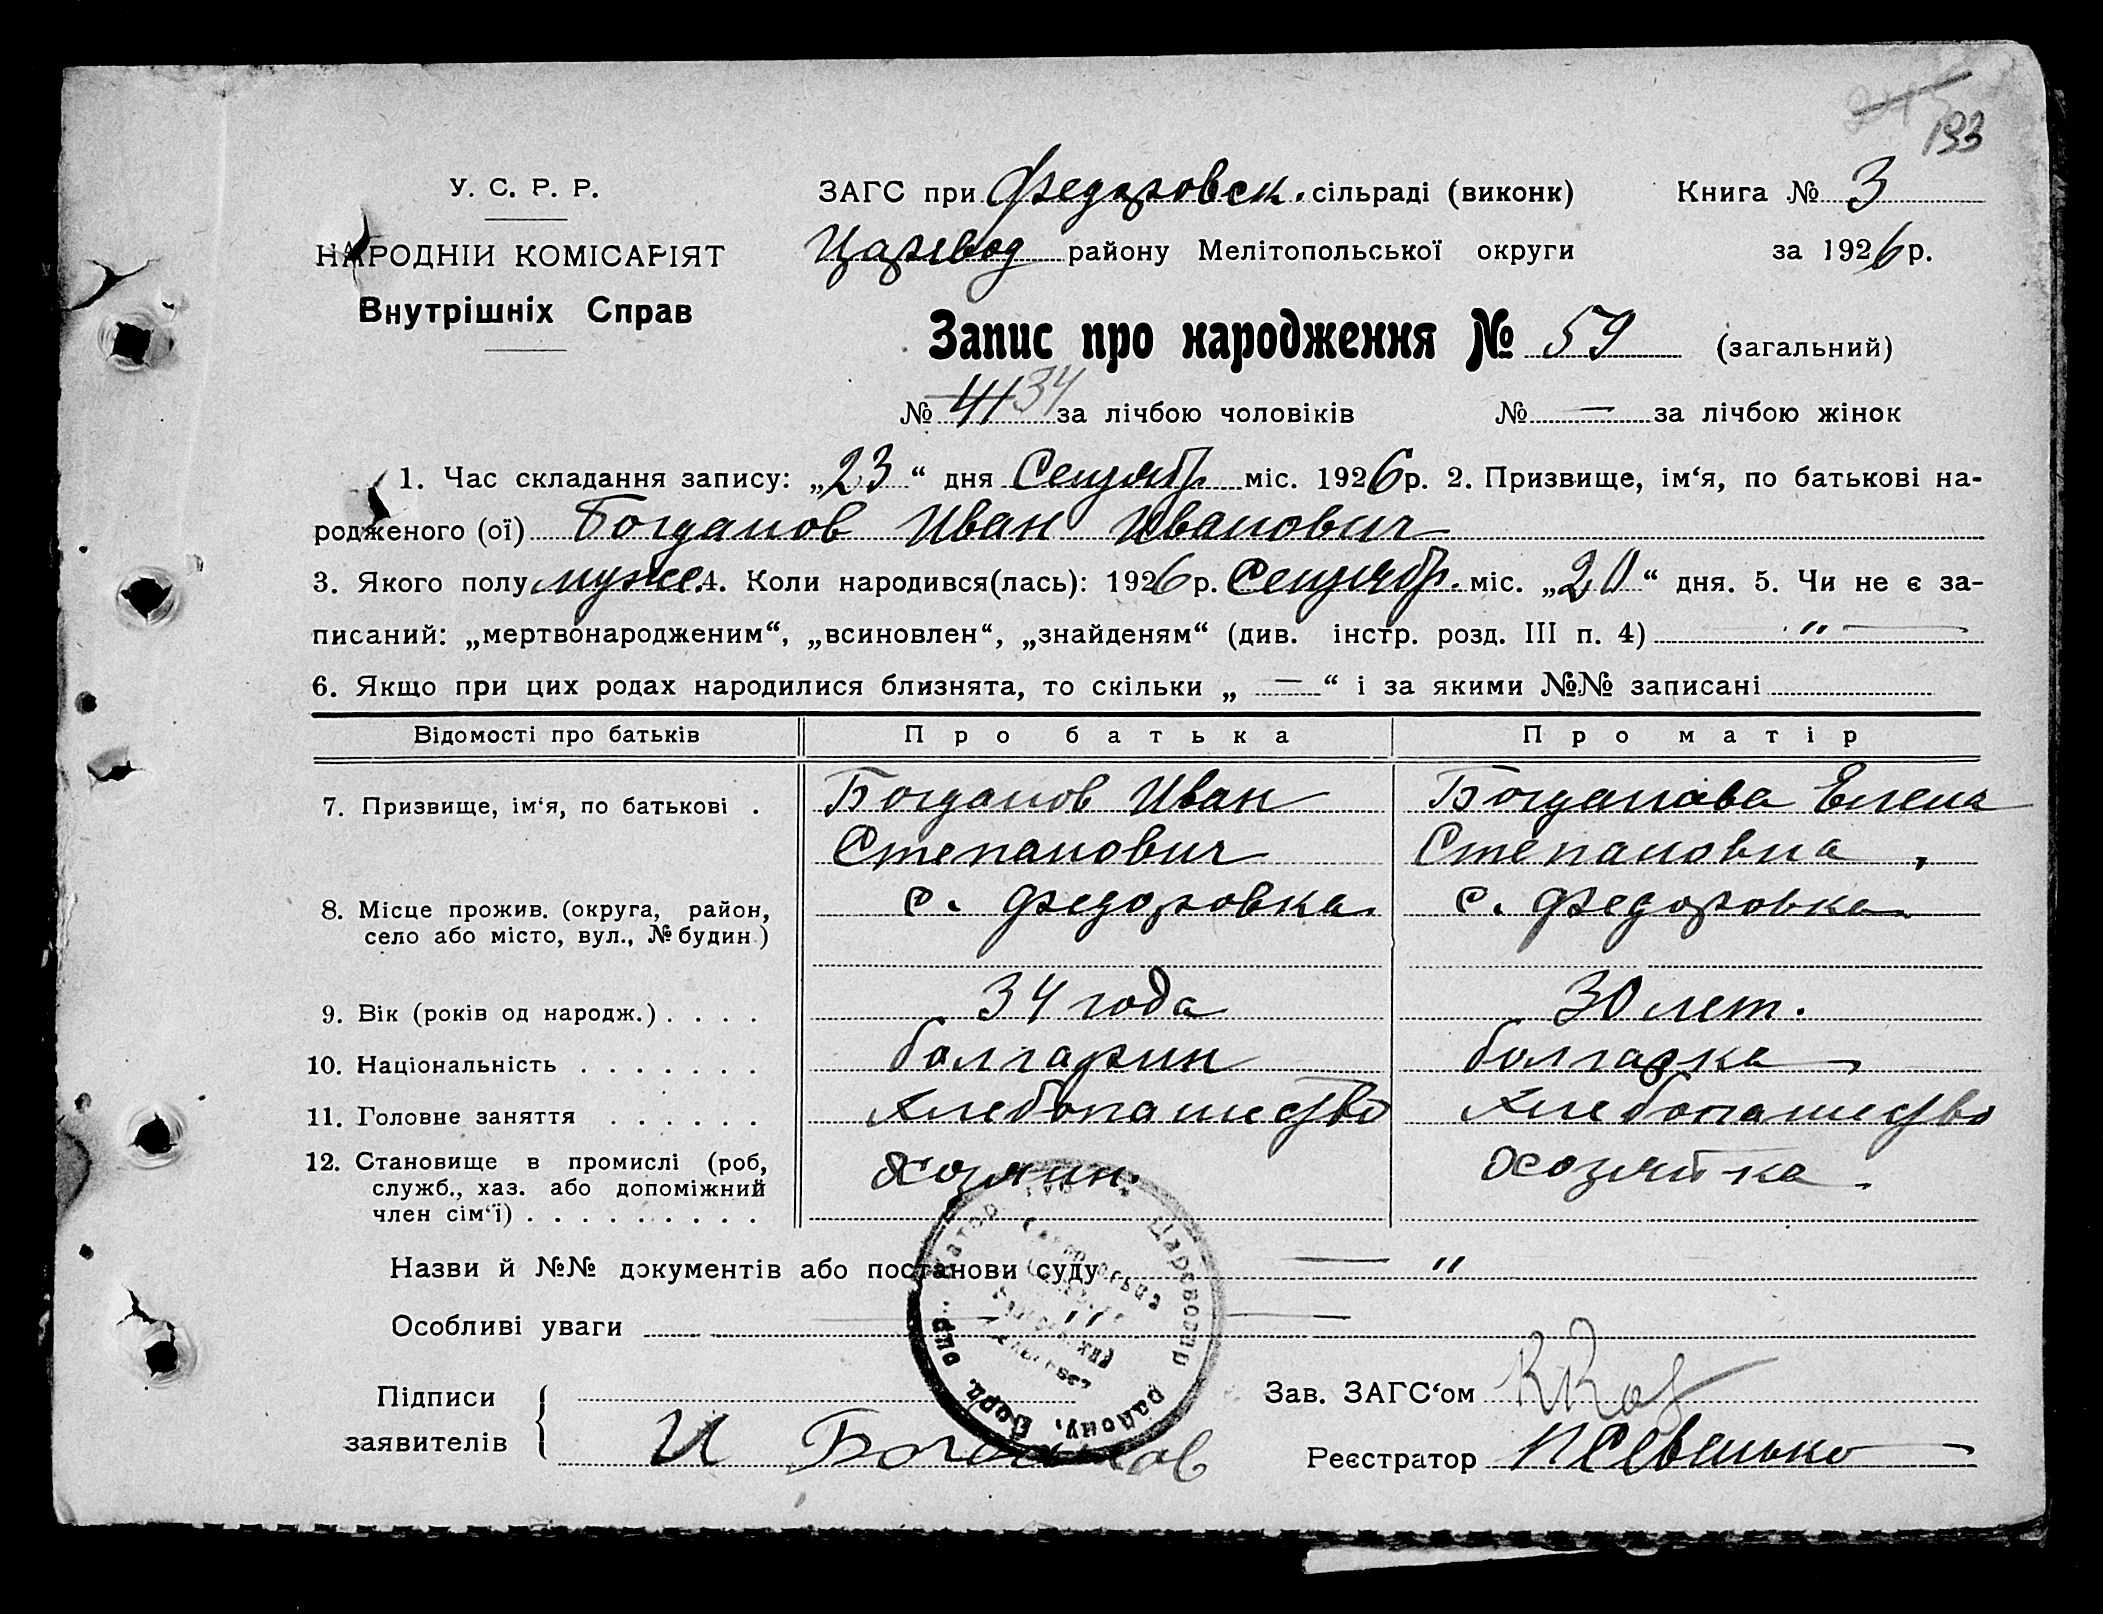 245
193
У. С. Р. Р.
ЗАГС при Федоровск. сільраді (виконк)
Книга № 3
НАРОДНІЙ КОМІСАРІЯТ
Царевод району Мелітопольської округи
за 1926 р.
Внутрішніх Справ
Запис про народження № 59 (загальний)
№ 41 34 за лічбою чоловіків № — за лічбою жінок
1. Час складання запису: „23“ дня Сентябр. міс. 1926 р. 2. Призвище, ім‘я, по батькові на-
родженого (ої) Богданов Иван Иванович
3. Якого полу мужс. 4. Коли народився(лась): 1926 р. Сентябр. міс. „20“ дня. 5. Чи не є за-
писаний: „мертвонародженим“, „всиновлен“, „знайденям“ (див. інстр. розд. III п. 4) — " —
6. Якщо при цих родах народилися близнята, то скільки „ — “ і за якими №№ записані
Відомості про батьків Про батька Про матір
7. Призвище, ім‘я, по батькові . Богданов Иван Богданова Елена
Степанович Степановна,
8. Місце прожив. (округа, район, с. Федоровка. с. Федоровка.
село або місто, вул., № будин.)
9. Вік (років од народж.) . . . . 34 года 30 лет.
10. Національність . . . . . . . болгарин болгарка
11. Головне заняття . . . . . . Хлебопашество Хлебопашество
12. Становище в промислі (роб, Хозяин. Хозяйка.
служб., хаз. або допоміжний
член сім‘ї) . . . . . . . . .
Назви й №№ документів або постанови суду — "
Особливі уваги — " —
Царевоводр району, Берд.
Підписи
Зав. ЗАГС‘ом
заявителів И Богданов
Реєстратор